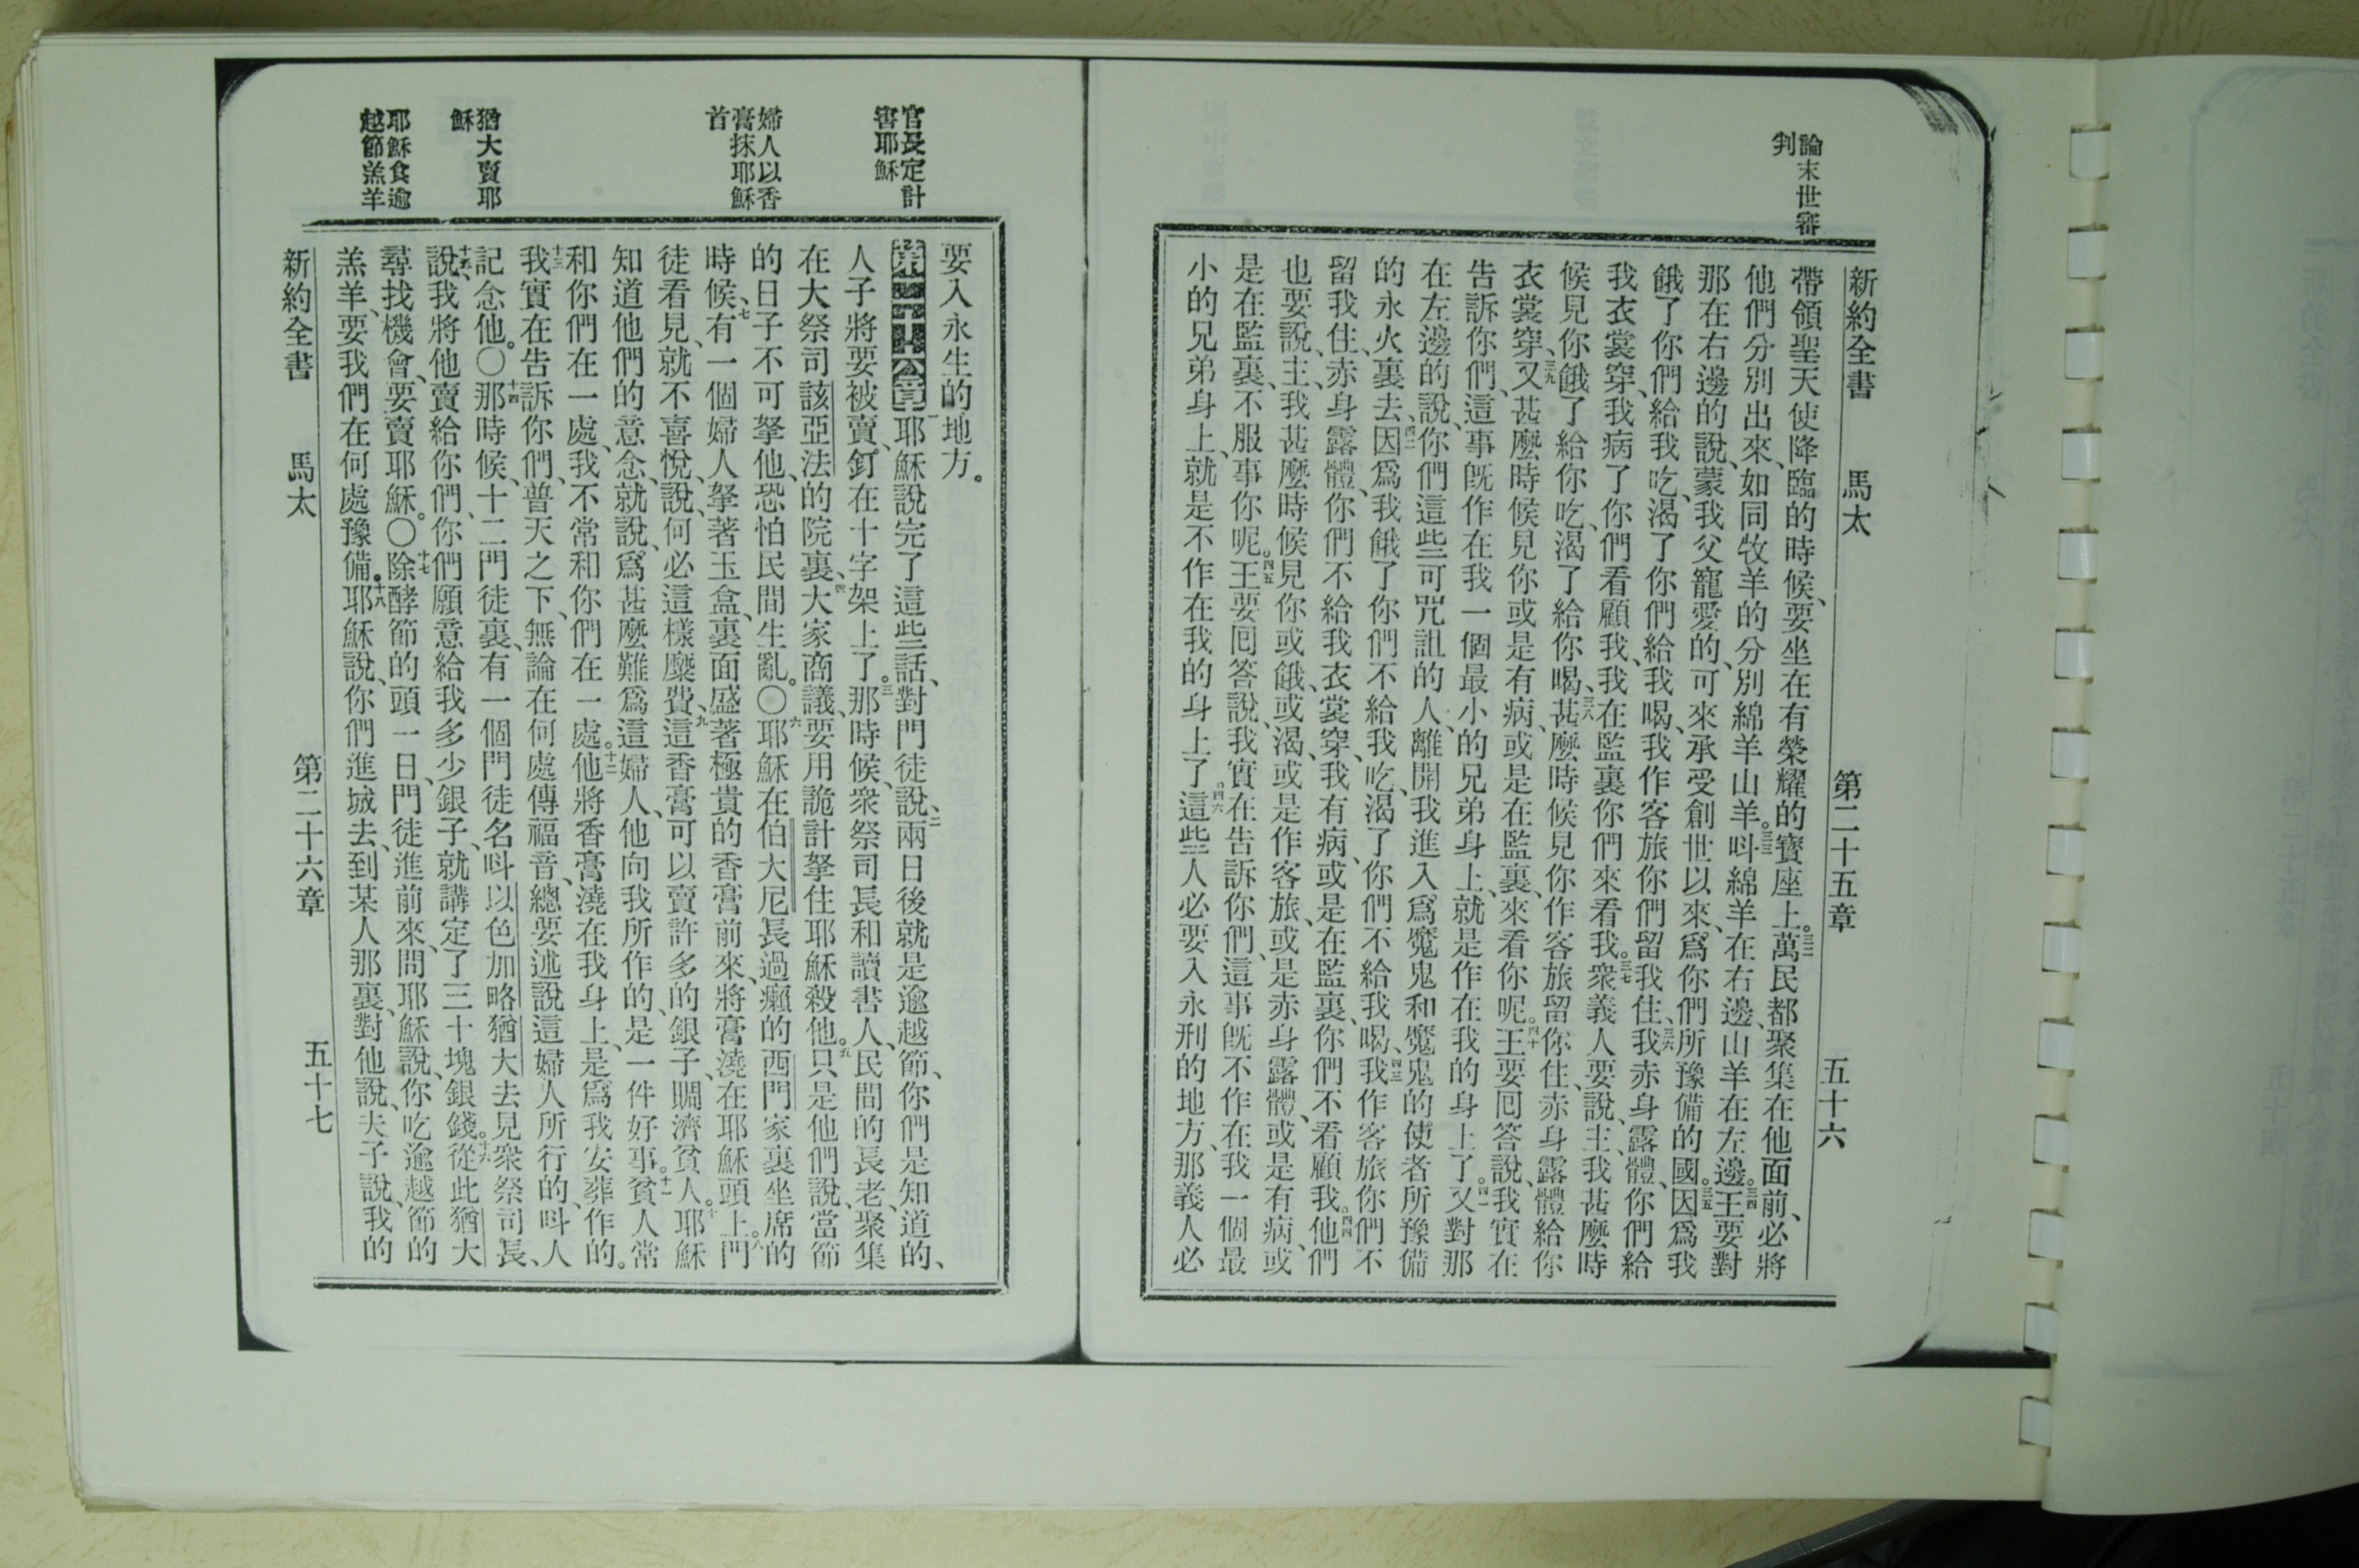 論末世審
判
新約全書 馬太 第二十五章 五十六
帶領聖天使降臨的時候、要坐在有榮耀的寳座上。三二萬民都聚集在他面前、必將
他們分別出來、如同牧羊的分別綿羊山羊。三三呌綿羊在右邊、山羊在左邊。三四王要對
那在右邊的說、蒙我父寵愛的、可來承受創世以來、爲你們所豫備的國。三五因爲我
餓了你們給我吃、渴了你們給我喝、我作客旅你們留我住、三六我赤身露體、你們給
我衣裳穿、我病了你們看顧我、我在監裏你們來看我。三七衆義人要說、主、我甚麼時
候見你餓了給你吃、渴了給你喝、三八甚麼時候見你作客旅留你住、赤身露體給你
衣裳穿、三九又甚麼時候見你或是有病、或是在監裏、來看你呢。四十王要囘答說、我實在
告訴你們、這事旣作在我一個最小的兄弟身上、就是作在我的身上了。四一又對那
在左邊的說、你們這些可咒詛的人、離開我進入爲魔鬼和魔鬼的使者所豫備
的永火裏去、四二因爲我餓了你們不給我吃、渴了你們不給我喝、四三我作客旅你們不
留我住、赤身露體、你們不給我衣裳穿、我有病、或是在監裏、你們不看顧我。四四他們
也要說、主、我甚麼時候見你或餓、或渴、或是作客旅、或是赤身露體、或是有病、或
是在監裏、不服事你呢。四五王要囘答說、我實在告訴你們、這事旣不作在我一個最
小的兄弟身上、就是不作在我的身上了。四六這些人必要入永刑的地方、那義人必
官長定計
害耶穌
婦人以香
膏抹耶穌
首
猶大賣耶
穌
耶穌食逾
越節羔羊
要入永生的地方。
第二十六章 一耶穌說完了這些話、對門徒說、二兩日後就是逾越節、你們是知道的、
人子將要被賣、釘在十字架上了。三那時候、衆祭司長和讀書人、民間的長老、聚集
在大祭司該亞法的院裏、四大家商議、要用詭計拏住耶穌殺他。五只是他們說、當節
的日子不可拏他、恐怕民間生亂。〇六耶穌在伯大尼長過癩的西門家裏坐席的
時候、七有一個婦人拏著玉盒、裏面盛著極貴的香膏前來、將膏澆在耶穌頭上。八門
徒看見、就不喜悅、說、何必這樣糜費、九這香膏可以賣許多的銀子、賙濟貧人。十耶穌
知道他們的意念、就說、爲甚麼難爲這婦人、他向我所作的、是一件好事。十一貧人常
和你們在一處、我不常和你們在一處。十二他將香膏澆在我身上、是爲我安葬作的。
十三我實在告訴你們、普天之下、無論在何處傳福音、總要述說這婦人所行的、呌人
記念他。〇十四那時候、十二門徒裏、有一個門徒名呌以色加略猶大去見衆祭司長、
十五說、我將他賣給你們、你們願意給我多少銀子、就講定了三十塊銀錢。十六從此猶大
尋找機會、要賣耶穌。〇十七除酵節的頭一日、門徒進前來、問耶穌說、你吃逾越節的
羔羊、要我們在何處豫備。十八耶穌說、你們進城去、到某人那裏、對他說、夫子說、我的
新約全書 馬太 第二十六章 五十七